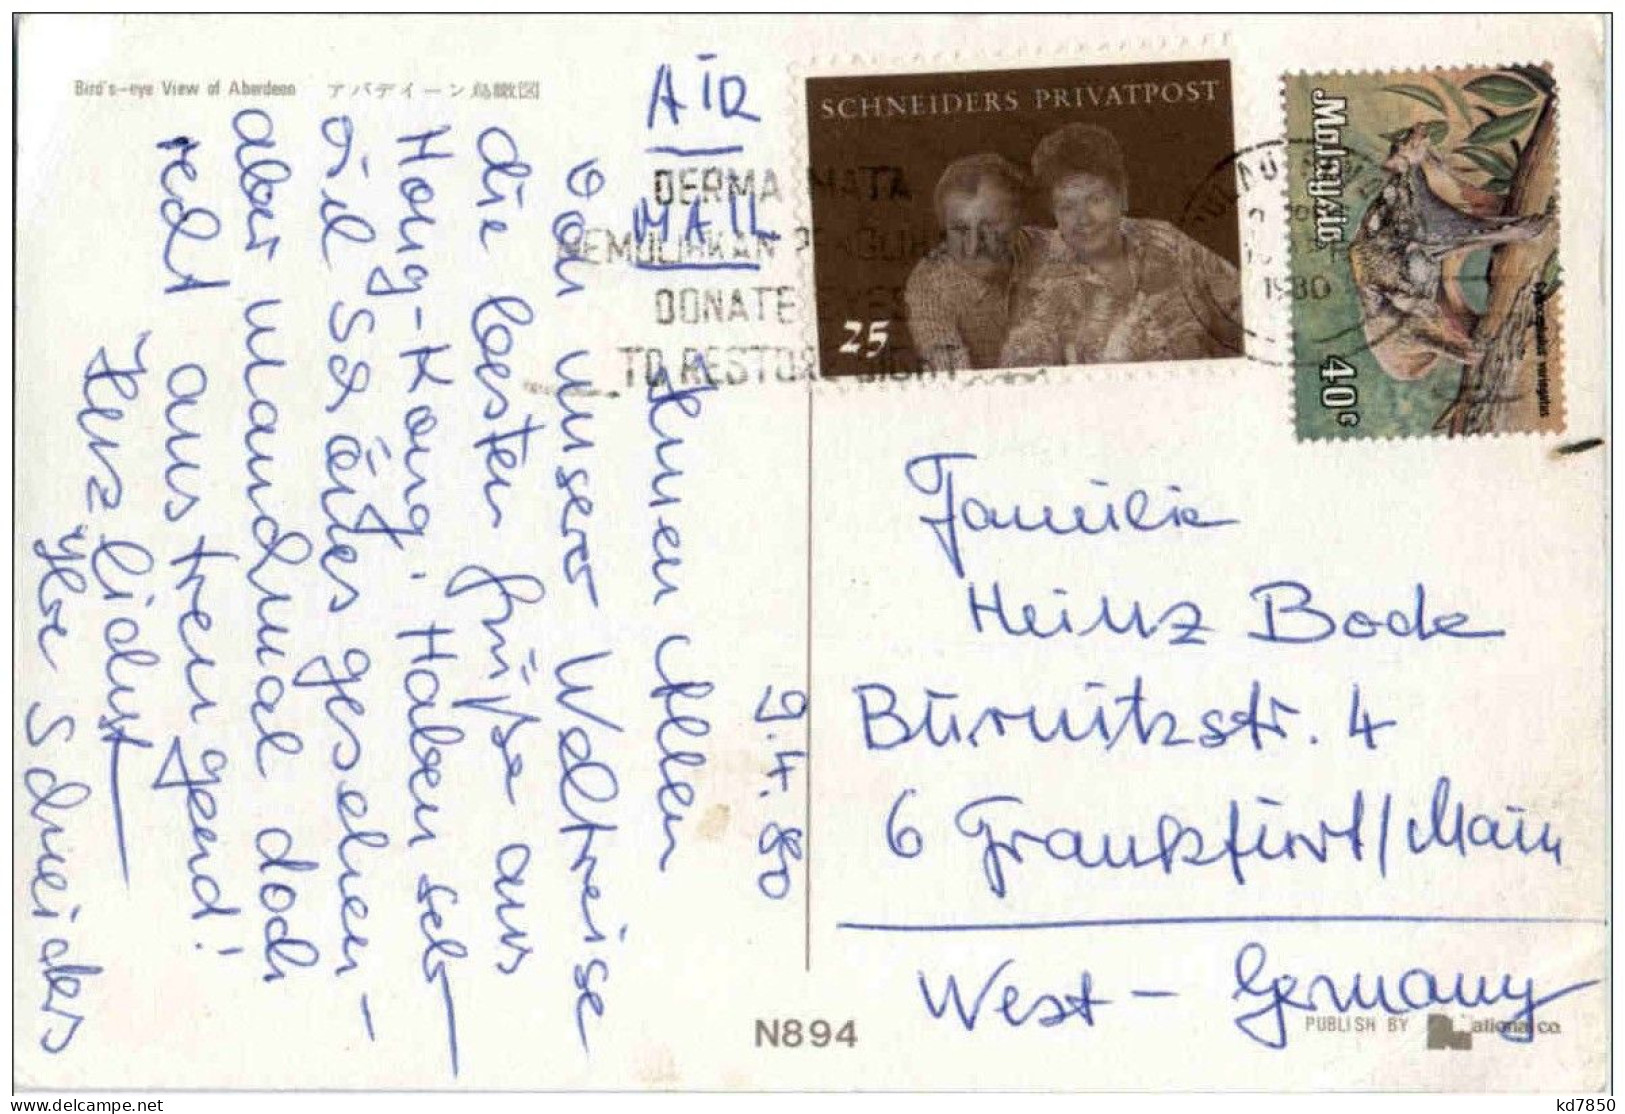 Bird's-eye View of Aberdeen アバディーン鳥瞰図
AIR
MAIL
9.4.80
Ihnen Allen
von unserer Weltreise
die besten Grüße aus
Hong-Kong. Haben sehr
viel Schönes gesehen-
aber manchmal doch
recht anstrengend!
Herzlichst
Ihre Schneiders
DERMA MATA
MEMULIHKAN PENGLIHATAN
DONATE EYES
TO RESTORE SIGHT
SCHNEIDERS PRIVATPOST
25
1980
Malaysia
40c
Cynocephalus variegatus
Familie
Heinz Bode
Burnitzstr. 4
6 Frankfurt/Main
West-Germany
N894
PUBLISH BY National co.
kd7850